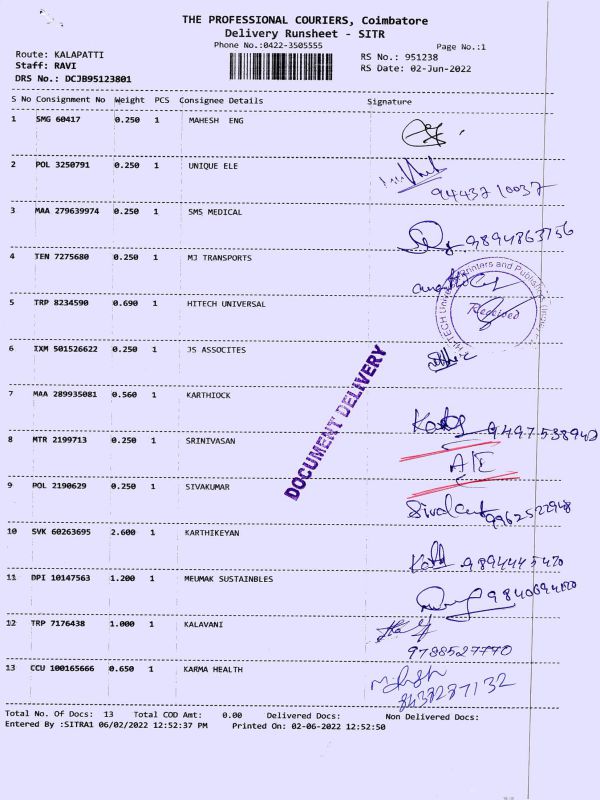 THE PROFESSIONAL COURIERS, Coimbatore
Delivery Runsheet - SITR
Phone No.:0422-3505555 Page No.:1
Route: KALAPATTI RS No.: 951238
Staff: RAVI RS Date: 02-Jun-2022
DRS No.: DCJB95123801
S No Consignment No Weight PCS Consignee Details Signature
1 SMG 60417 0.250 1 MAHESH ENG
2 POL 3250791 0.250 1 UNIQUE ELE
9443710037
3 MAA 279639974 0.250 1 SMS MEDICAL
9894863756
4 TEN 7275680 0.250 1 MJ TRANSPORTS
5 TRP 8234590 0.690 1 HITECH UNIVERSAL
Received
6 IXM 501526622 0.250 1 JS ASSOCITES
DOCUMENT DELIVERY
7 MAA 289935081 0.560 1 KARTHIOCK
9497538942
8 MTR 2199713 0.250 1 SRINIVASAN
A/E
9 POL 2190629 0.250 1 SIVAKUMAR
9962522948
10 SVK 60263695 2.600 1 KARTHIKEYAN
9894445470
11 DPI 10147563 1.200 1 MEUMAK SUSTAINBLES
12 TRP 7176438 1.000 1 KALAVANI
9788527770
13 CCU 100165666 0.650 1 KARMA HEALTH
8438287132
Total No. Of Docs: 13 Total COD Amt: 0.00 Delivered Docs: Non Delivered Docs:
Entered By :SITRA1 06/02/2022 12:52:37 PM Printed On: 02-06-2022 12:52:50